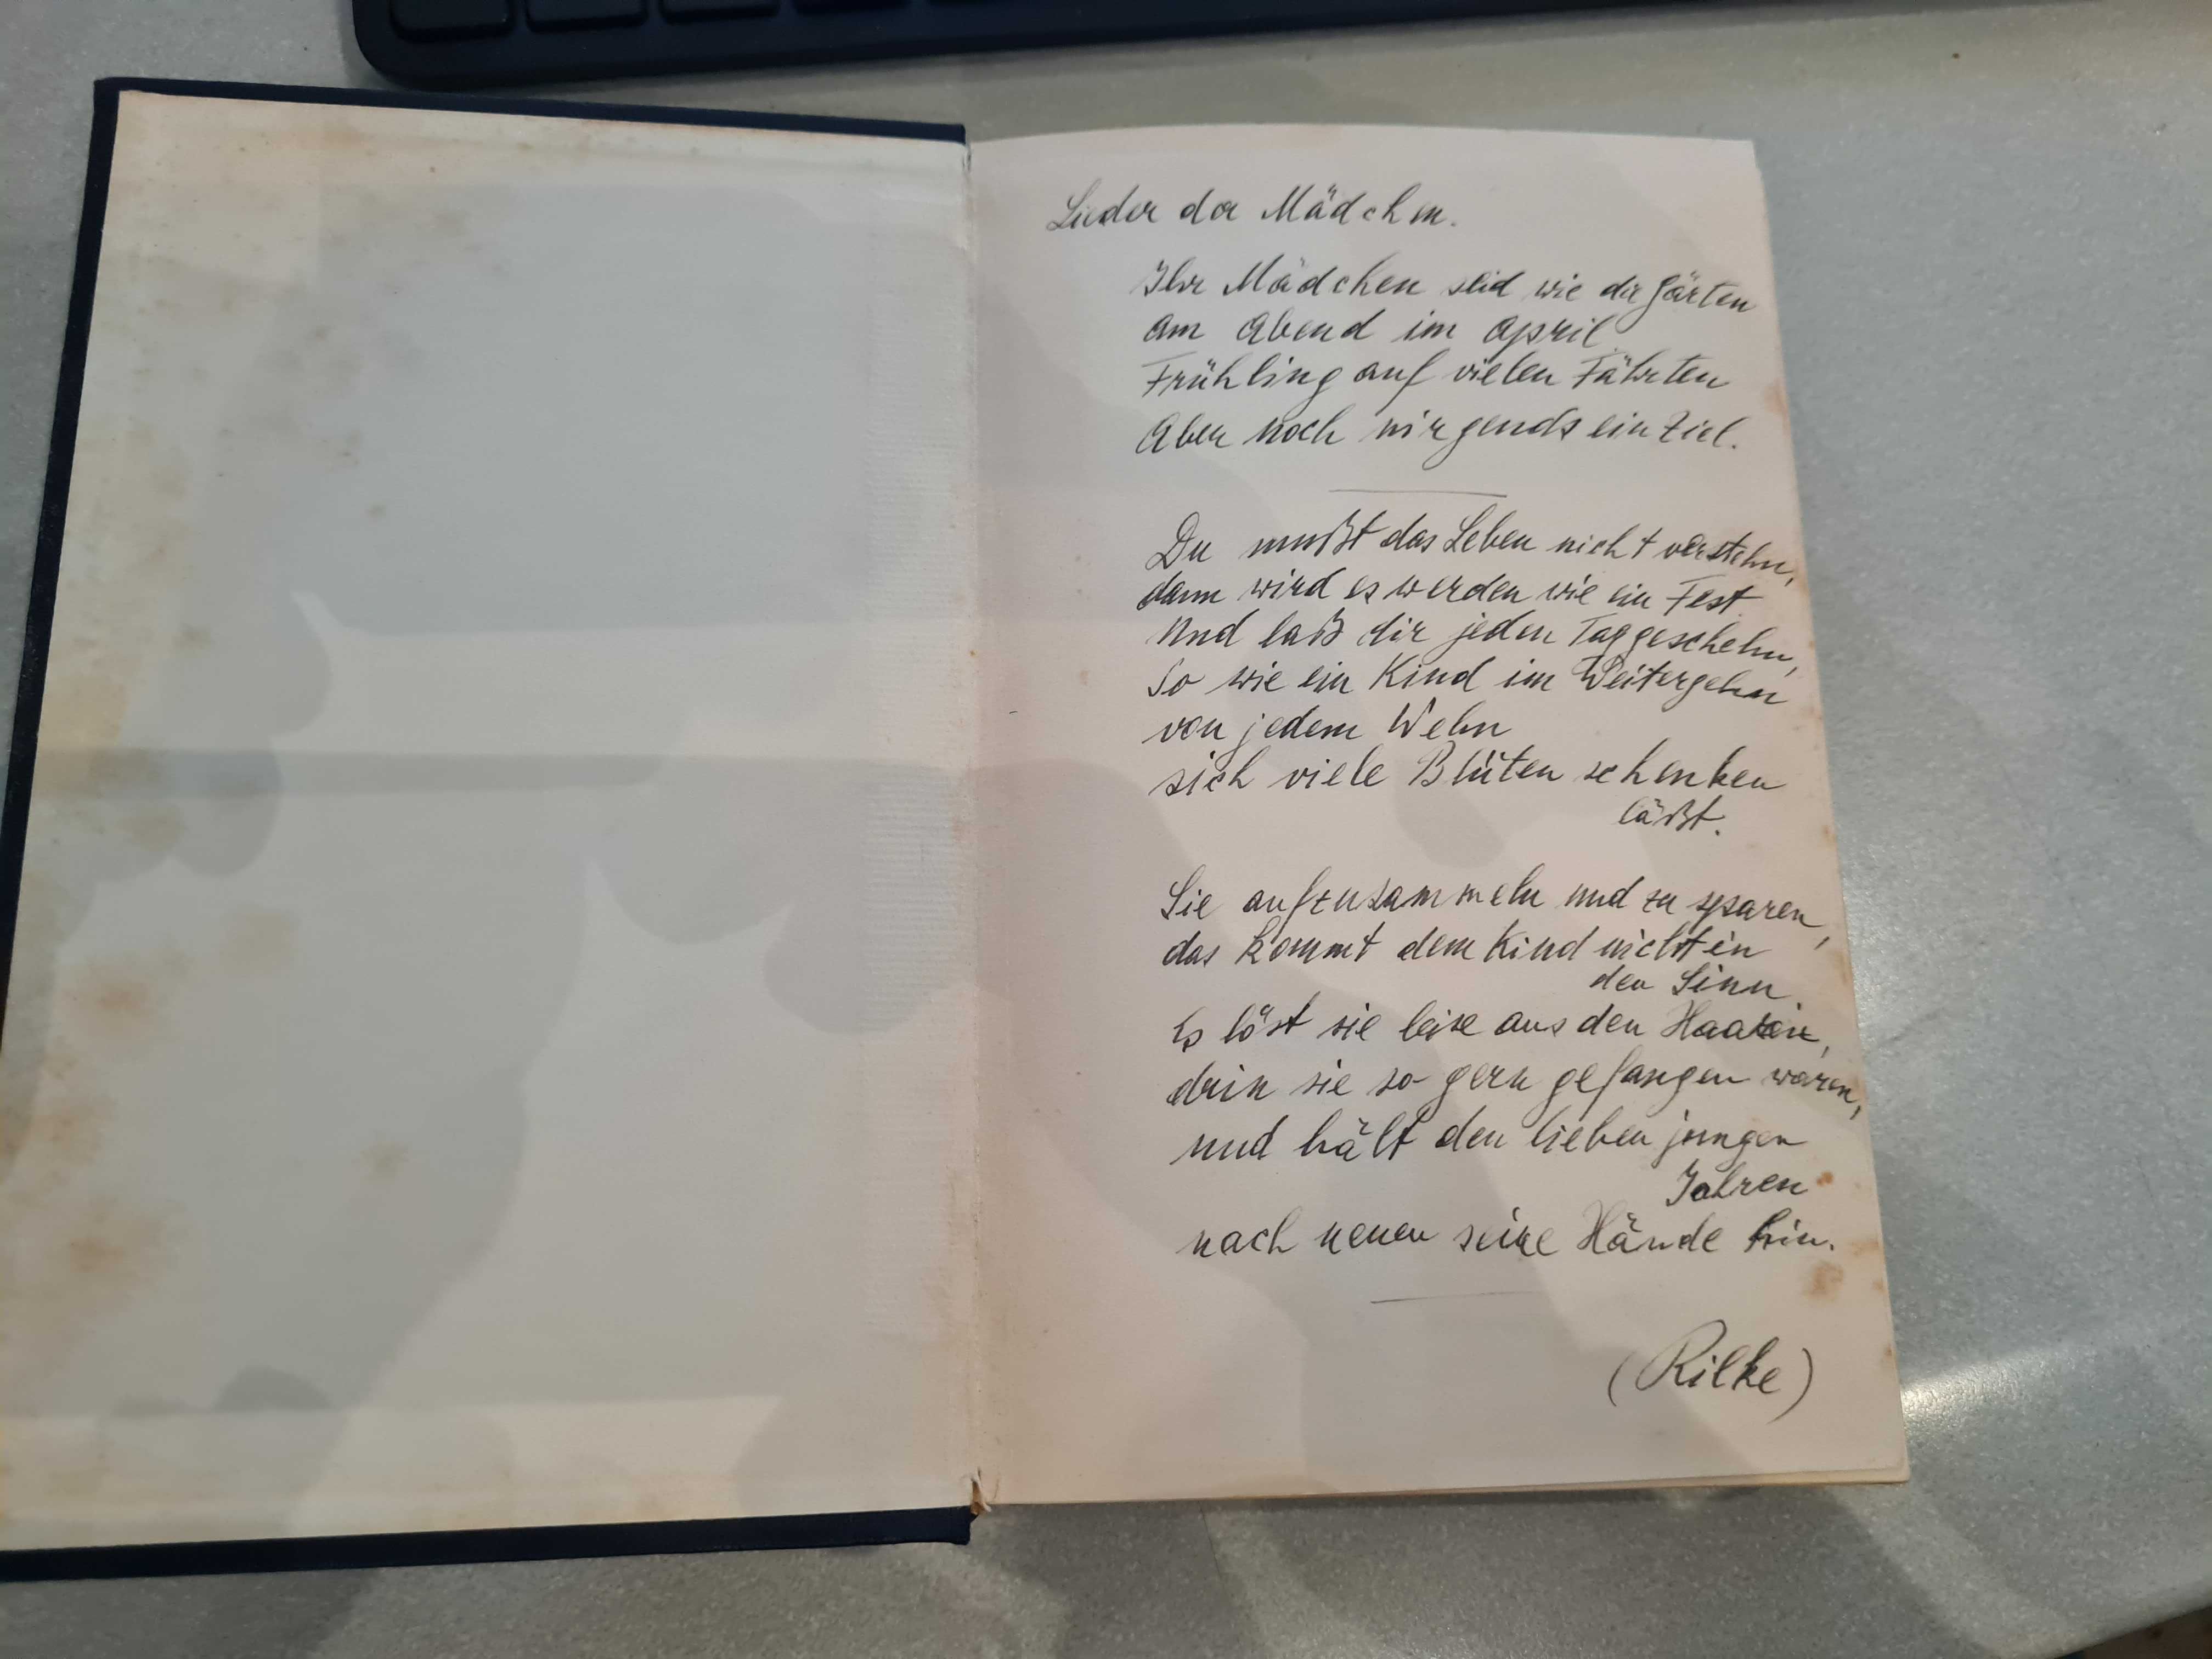 Lieder der Mädchen.
Ihr Mädchen seid wie die Gärten
am Abend im April
Frühling auf vielen Fährten
Aber noch nirgends ein Ziel.
Du mußt das Leben nicht verstehn,
dann wird es werden wie ein Fest
Und laß dir jeden Tag geschehn,
So wie ein Kind im Weitergehn
von jedem Wehn
sich viele Blüten schenken
läßt.
Sie aufzusammeln und zu sparen,
das kommt dem Kind nicht in
den Sinn.
Es löst sie leise aus den Haaren,
drin sie so gern gefangen waren,
und hält den lieben jungen
Jahren
nach neuen seine Hände hin.
(Rilke)